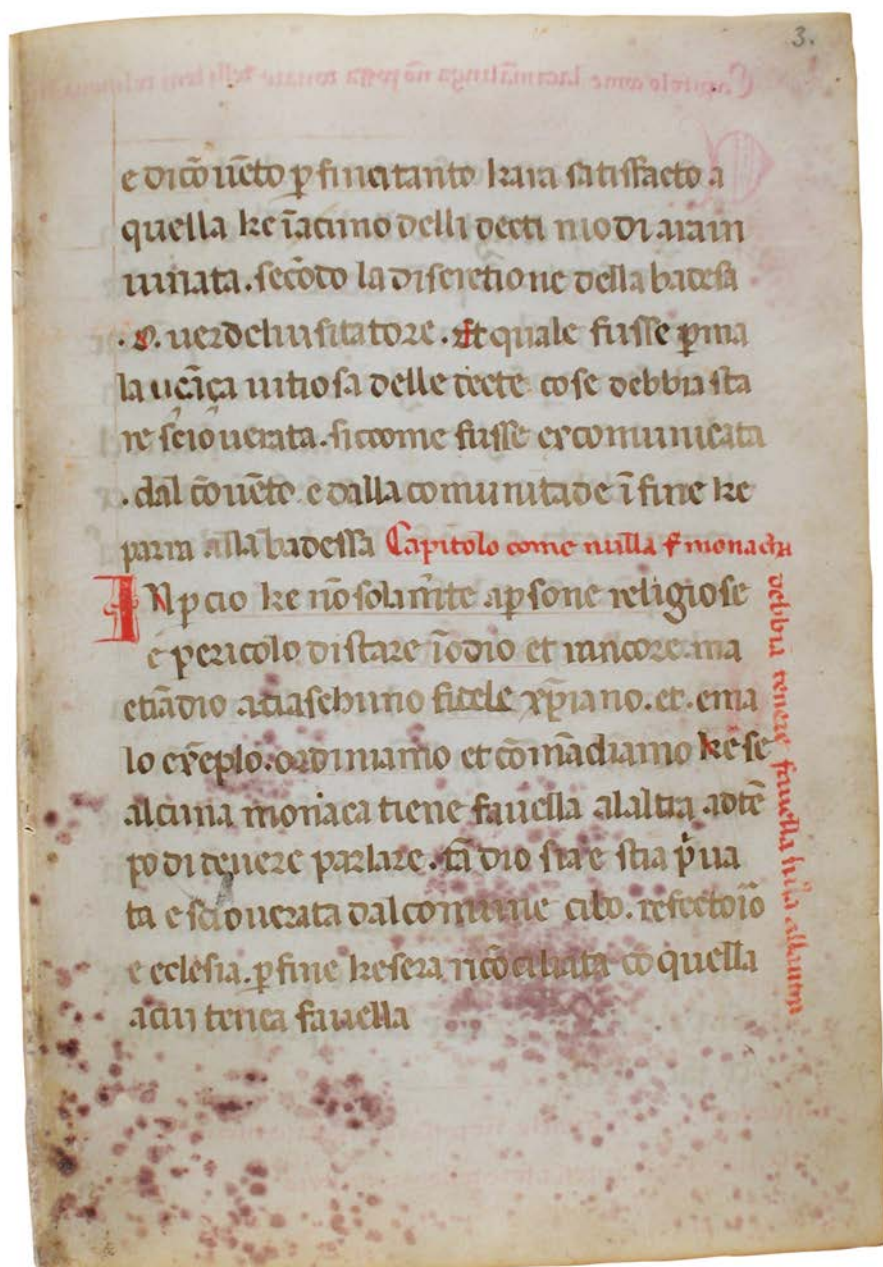 3.
e di cōuēto ꝑ fine a tanto kara satisffacto a
quella ke ī acuno delli decti modi aiam
iuriata. secōdo la discretione della badessa
.o. uer del uisitatore. Et quale fusse ꝑ ma
la uçāça uitiosa delle decte cose debbia sta
re sciouerata. siccome fusse excomunicata
.dal cōuēto. e dalla comunitade ī fine ke
parra alla badessa Capitolo come nulla monacha
debbia tenere fauella
INꝑcio ke nō solamīte a ꝑsone religiose
é pericolo di stare ī odio et rancore. ma
etiādio a ciaschuno fidele xp̄iano. et. e ma
lo exēplo. ordiniamo et cōmādiamo ke se
alcuna monaca tiene fauella a laltra adtē
po di tenere parlare. tādio stia e stia p̄ua
ta e sciouerata dal comune cibo. refectoīo
e eclesia. ꝑ fine ke sera ricōciliata cō quella
a cui tenea fauella